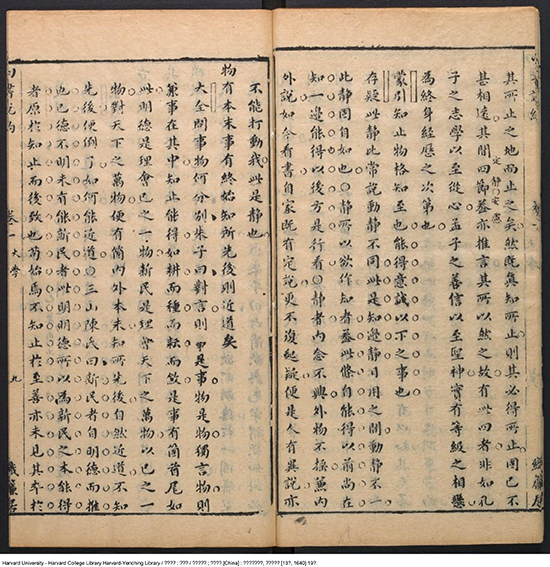 其所止之地而止之矣然既真知所止則其必得所止固已不
甚相遠其間四節蓋亦推言其所以然之故有此四者非如孔
定 靜 安 慮
子之志學以至從心孟子之善信以至聖神實有等級之相懸
為終身經歷之次第也
蒙引知止物格知至也能得意誠以下之事也
存疑此靜此常說動靜不同此是知邊靜日用之間動靜在
此靜固自如也 靜所以欲作知者蓋此條自能得以前尚在
知一邊能得以後方是行看 靜者內念不興外物不搖兼內
外說如今看書自家既有定說更不復疑便是今有異說亦
不能打動我此是靜也
物有本末事有終始知所先後則近道矣
大全問事物何分別朱子曰對言則事是事物是物獨言物則
兼事在其中知止能得如耕而種而耘而斂是事有箇首尾如
此明德是理會己之一物新民是理會天下之萬物以己之一
物對天下之萬物便有箇內外本末知所先後自然近道不知
先後便倒了如何能近道 三山陳氏曰新民者自明德而推
也己德不明未有能新民者此明明德所以為新民之本能得
者原於知止而後致也苟始焉不知止於至善亦未見其卒於
卷一 大學 九
Harvard University - Harvard College Library Harvard-Yenching Library / ???? : ??? / ????? ; ???? [China] : ???????, ????? [13?, 1640] 19?.